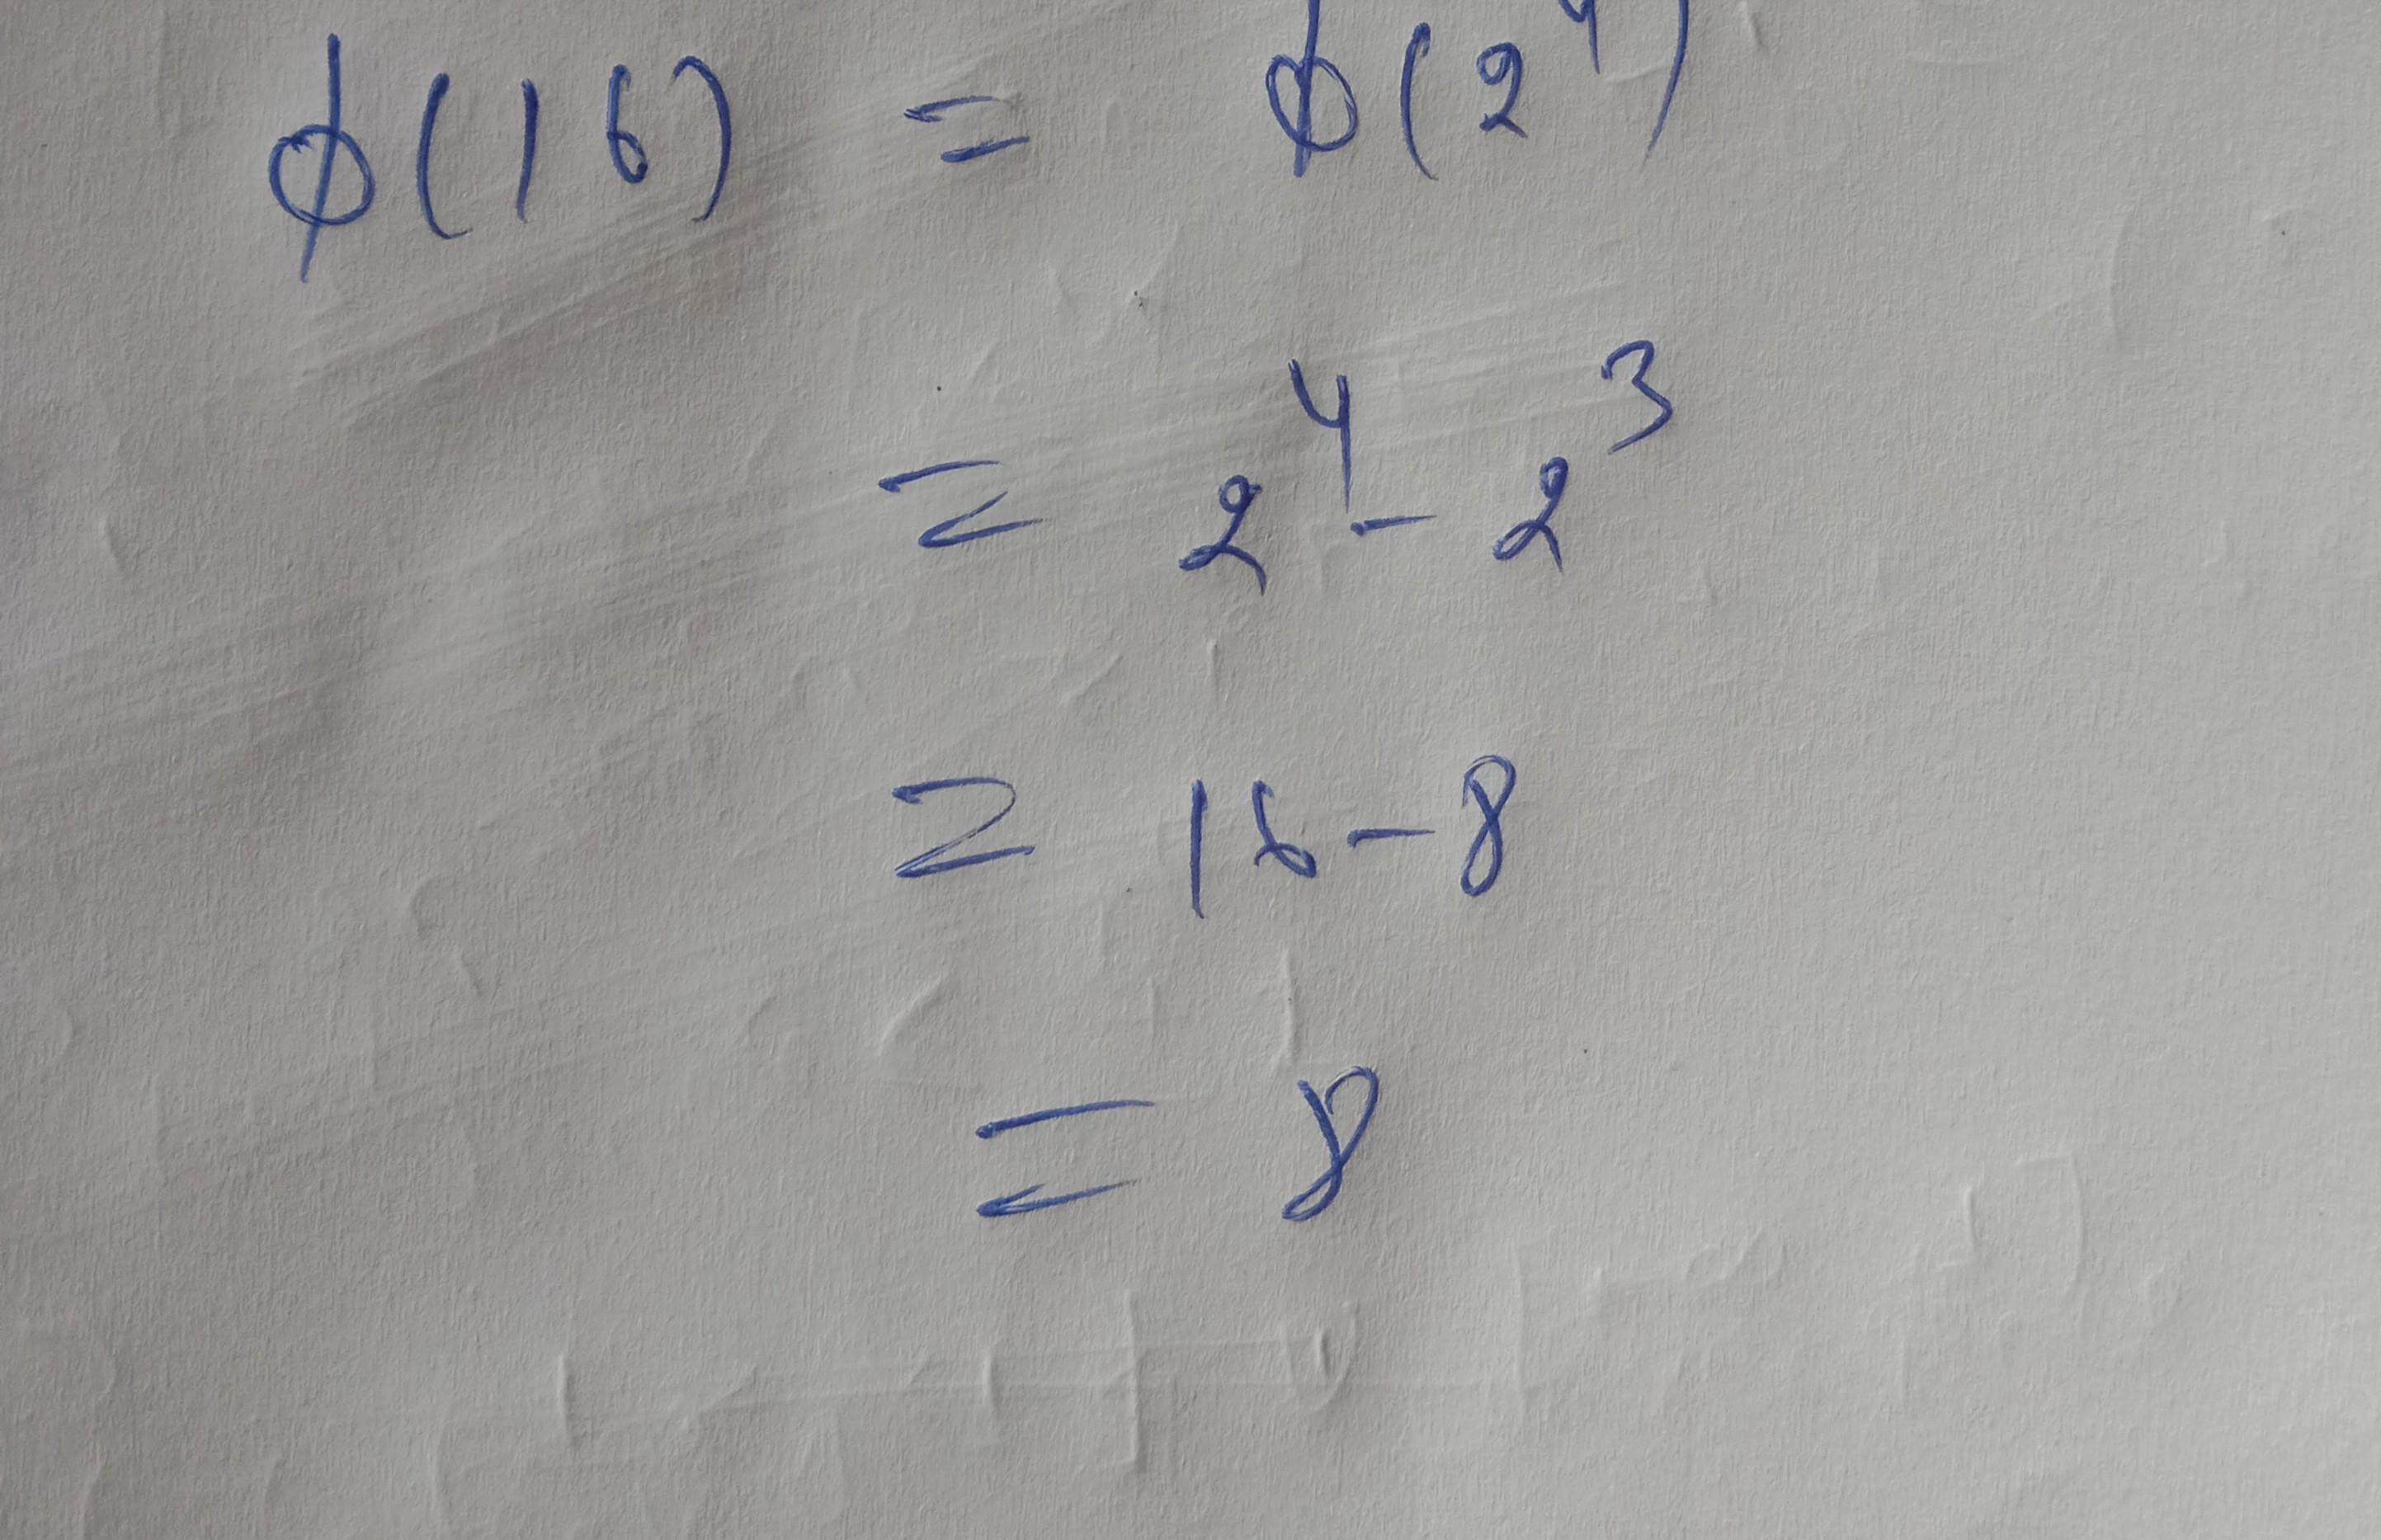 ϕ(16) = ϕ(2⁴)
= 2⁴ - 2³
= 16 - 8
= 8